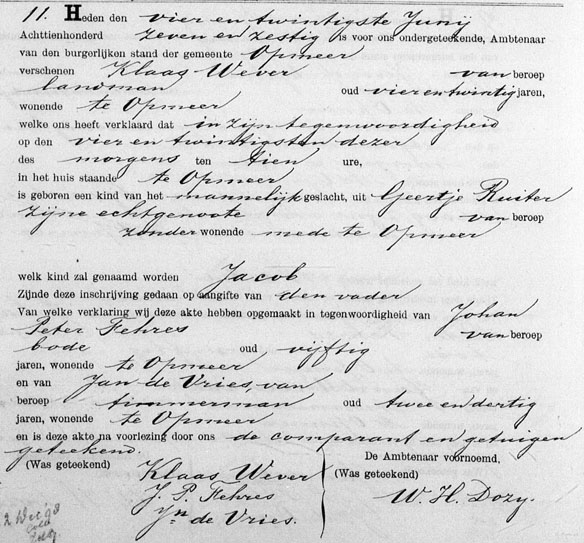 11. Heden den vier en twintigste Junij
Achttienhonderd zeven en zestig is voor ons ondergeteekende, Ambtenaar
van den burgerlijken stand der gemeente Opmeer
verschenen Klaas Wever van beroep
landman oud vier en twintig jaren,
wonende te Opmeer
welke ons heeft verklaard dat in zijn tegenwoordigheid
op den vier en twintigsten dezer
des morgens ten tien ure,
in het huis staande te Opmeer
is geboren een kind van het mannelijk geslacht, uit Geertje Ruiter
zijne echtgenoote van beroep
zonder wonende mede te Opmeer
welk kind zal genaamd worden Jacob
Zijnde deze inschrijving gedaan op aangifte van den vader
Van welke verklaring wij deze akte hebben opgemaakt in tegenwoordigheid van Johan
Peter Fehres van beroep
bode oud vijftig
jaren, wonende te Opmeer
en van Jan de Vries, van
beroep timmerman oud twee en dertig
jaren, wonende te Opmeer
en is deze akte na voorlezing door ons de comparant en getuigen
geteekend.
(Was geteekend) Klaas Wever
J. P. Fehres
Jn de Vries.
De Ambtenaar voornoemd,
(Was geteekend)
W. H. Dozy.